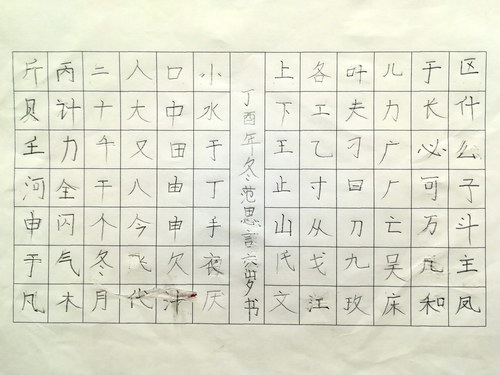 区什么子斗主凤
于长必可万和
儿力广厂亡吴床
叶夫刁曰刀九玫
各工乙寸从戈江
上下王止山氏文
丁酉年冬范思言六岁书
小水于丁手夜厌
口中田由申欠
人大又八今飞代
二十午干个冬月
丙计力全闪气木
斤贝壬河申于凡